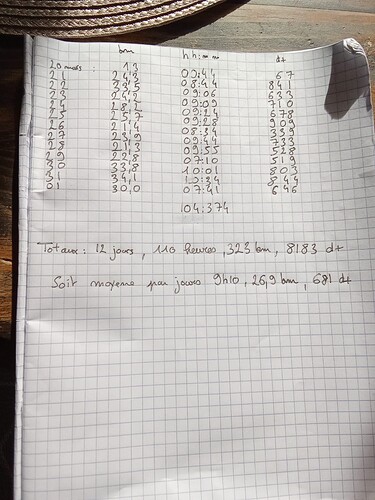 km hh:mm d+
20 mars : 13
21 24,3 09:44 67
22 23,5 08:44 841
23 24,2 09:06 633
24 28,2 09:09 710
25 25,7 09:24 678
26 21,4 09:28 909
27 23,9 08:34 339
28 21,3 09:44 733
29 22,8 09:55 528
30 33,8 07:10 519
31 34,1 10:01 803
01 30,0 10:24 844
07:41 646
104:374
Totaux : 12 jours , 110 heures , 323 km , 8183 d+
Soit moyenne par jours 9h10 , 26,9 km , 681 d+